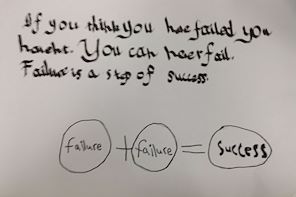 If you think you have failed you
havent. You can never fail.
Failure is a step of success.
failure + failure = success